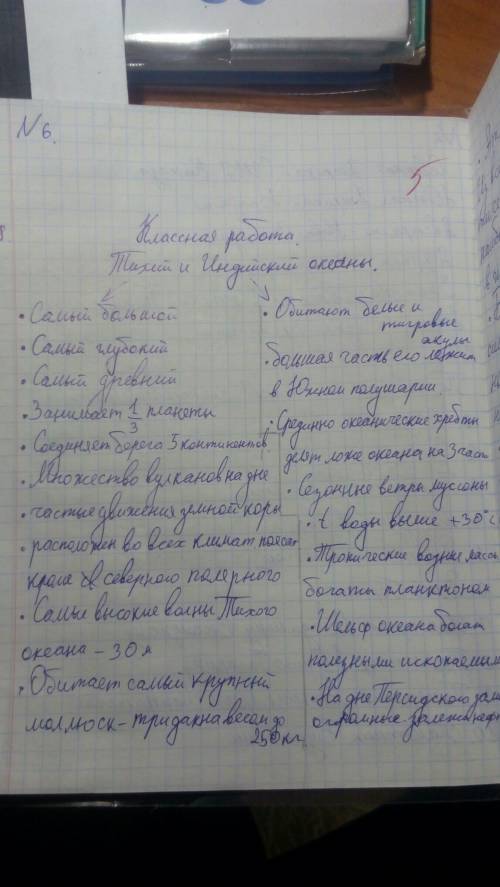 N 6.
5
Классная работа.
Тихий и Индийский океаны.
• Самый большой
• Самый глубокий
• Самый древний
• Занимает 1/3 планеты
• Соединяет берега 5 континентов
• Множество вулканов на дне
• частые движения земной коры
• расположен во всех климат поясах
кроме северного полярного
• Самые высокие волны Тихого
океана - 30 м
• Обитает самый крупный
моллюск - тридакна весом до
250 кг
• Обитают белые и
тигровые
акулы
• большая часть его лежит
в Южном полушарии.
• Срединно океанические хребты
делят ложе океана на 3 част
• Сезонные ветры муссоны
• t воды выше +30°C
• Тропические водные массы
богаты планктоном
• Шельф океана богат
полезными ископаемым
• На дне Персидского зал
огромные залежи нефт